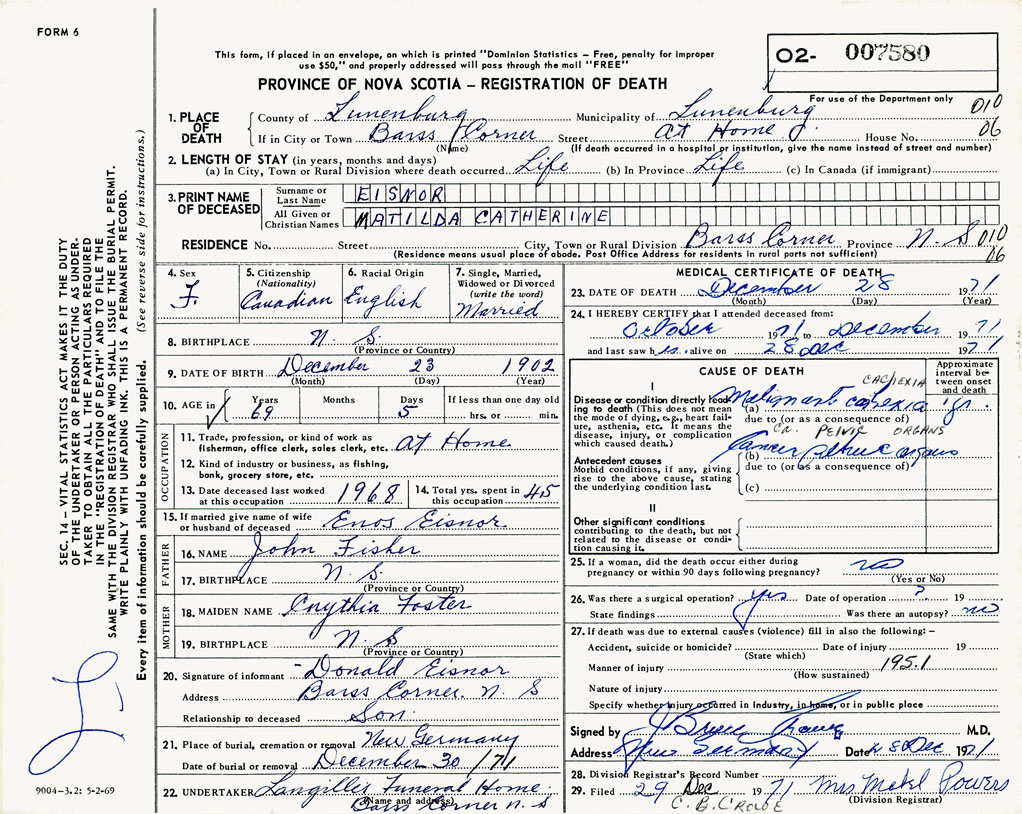 FORM 6
This form, if placed in an envelope, on which is printed "Dominion Statistics – Free, penalty for improper
use $50," and properly addressed will pass through the mail "FREE"
PROVINCE OF NOVA SCOTIA – REGISTRATION OF DEATH
O2- 007580
For use of the Department only
010
06
1. PLACE OF DEATH
County of Lunenburg Municipality of Lunenburg
If in City or Town Barss Corner Street At Home House No.
(Name) (If death occurred in a hospital or institution, give the name instead of street and number)
2. LENGTH OF STAY (in years, months and days)
(a) In City, Town or Rural Division where death occurred Life (b) In Province Life (c) In Canada (if immigrant)
3. PRINT NAME OF DECEASED
Surname or Last Name EISNOR
All Given or Christian Names MATILDA CATHERINE
RESIDENCE No. Street City, Town or Rural Division Barss Corner Province N. S 010
(Residence means usual place of abode. Post Office Address for residents in rural parts not sufficient) 06
4. Sex F.
5. Citizenship (Nationality) Canadian
6. Racial Origin English
7. Single, Married, Widowed or Divorced (write the word) Married
8. BIRTHPLACE N. S.
(Province or Country)
9. DATE OF BIRTH December 23 1902
(Month) (Day) (Year)
10. AGE in Years 69 Months Days 5 If less than one day old hrs. or min.
OCCUPATION
11. Trade, profession, or kind of work as fisherman, office clerk, sales clerk, etc. At Home
12. Kind of industry or business, as fishing, bank, grocery store, etc.
13. Date deceased last worked at this occupation 1968
14. Total yrs. spent in this occupation 45
15. If married give name of wife or husband of deceased Enos Eisnor
FATHER
16. NAME John Fisher
17. BIRTHPLACE N. S.
(Province or Country)
MOTHER
18. MAIDEN NAME Cnythia Foster
19. BIRTHPLACE N. S
(Province or Country)
20. Signature of informant Donald Eisnor
Address Barss Corner. N. S
Relationship to deceased Son
21. Place of burial, cremation or removal New Germany
Date of burial or removal December 30 /71
22. UNDERTAKER Langilles Funeral Home
(Name and address) Barss Corner N. S
MEDICAL CERTIFICATE OF DEATH
23. DATE OF DEATH December 28 1971
(Month) (Day) (Year)
24. I HEREBY CERTIFY that I attended deceased from:
October 1971 to December 1971
and last saw h alive on 28 Dec 1971
CAUSE OF DEATH
Approximate interval between onset and death
I
CACHEXIA
Disease or condition directly leading to death (This does not mean the mode of dying, e.g., heart failure, asthenia, etc. It means the disease, injury, or complication which caused death.)
(a) Malignant 1 yr.
due to (or as a consequence of)
Ca. PELVIC ORGANS
Antecedent causes
Morbid conditions, if any, giving rise to the above cause, stating the underlying condition last.
(b) Cancer pelvic organs
due to (or as a consequence of)
(c)
II
Other significant conditions contributing to the death, but not related to the disease or condition causing it.
25. If a woman, did the death occur either during pregnancy or within 90 days following pregnancy? no
(Yes or No)
26. Was there a surgical operation? yes Date of operation ? 19
State findings Was there an autopsy? no
27. If death was due to external causes (violence) fill in also the following: –
Accident, suicide or homicide? Date of injury 19
(State which)
Manner of injury 195.1
(How sustained)
Nature of injury
Specify whether injury occurred in Industry, in home, or in public place
Signed by M.D.
Address New Germany Date 28 Dec 1971
28. Division Registrar's Record Number
29. Filed 29 Dec 1971 Mrs Mabel Powers
C. B. CROWE (Division Registrar)
SEC. 14 – VITAL STATISTICS ACT MAKES IT THE DUTY
OF THE UNDERTAKER OR PERSON ACTING AS UNDER-
TAKER TO OBTAIN ALL THE PARTICULARS REQUIRED
IN THE "REGISTRATION OF DEATH" AND TO FILE THE
SAME WITH THE DIVISION REGISTRAR WHO SHALL ISSUE THE BURIAL PERMIT.
WRITE PLAINLY WITH UNFADING INK. THIS IS A PERMANENT RECORD.
Every item of information should be carefully supplied. (See reverse side for instructions.)
9004-3.2: 5-2-69